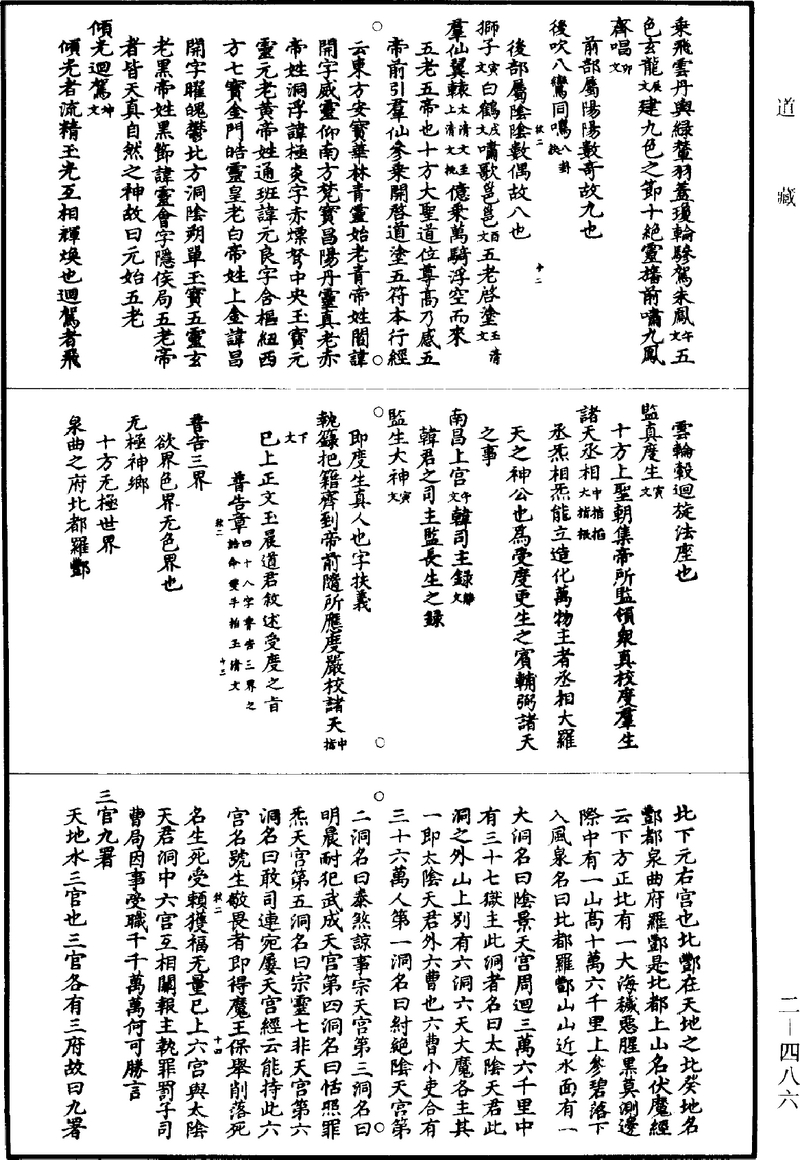 道藏
乘飛雲丹輿綠輦羽蓋瓊輪驂駕朱鳳午文五
色玄龍辰文建九色之節十絕靈旛前嘯九鳳
齊唱卯文
前部屬陽陽數奇故九也
後吹八鸞同鳴八卦訣
後部屬陰陰數偶故八也
獅子寅文白鶴戌文嘯歌邕邕酉文五老啓塗玉清文
羣仙翼轅上清文太清文億乘萬騎浮空而來
五老五帝也十方大聖道位尊高乃感五
帝前引羣仙參乘開啓道塗五符本行經
云東方安寶華林青靈始老青帝姓閻諱
開字威靈仰南方梵寶昌陽丹靈真老赤
帝姓洞浮諱極炎字赤熛弩中央玉寶元
靈元老黄帝姓通班諱元良字含樞紐西
方七寶金門皓靈皇老白帝姓上金諱昌
開字曜魄鬱北方洞陰朔單玉寶五靈玄
老黑帝姓黑節諱靈會字隱侯局五老帝
者皆天真自然之神故曰元始五老
傾光迴駕坤文
傾光者流精玉光互相輝煥也迴駕者飛
十二
雲輪轂迴旋法座也
監真度生寅文
十方上聖朝集帝所監領衆真校度羣生
諸天丞相中指掐大指根
丞炁相炁能立造化萬物主者丞相大羅
天之神公也爲受度更生之賓輔弼諸天
之事
南昌上宫午文韓司主録
韓君之司主監長生之録
監生大神寅文
即度生真人也字扶義
執籙把籍齊到帝前隨所應度嚴校諸天中指
下文
已上正文玉晨道君敘述受度之旨
普告章四十八字普告三界之誥命雙手掐玉清文
普告三界
欲界色界无色界也
无極神鄉
十方无極世界
泉曲之府北都羅酆
十三
此下元右宫也北酆在天地之北癸地名
酆都泉曲府羅酆是北都上山名伏魔經
云下方正北有一大海穢惡腥黑莫測邊
際中有一山高十萬六千里上參碧落下
入風泉名曰北都羅酆山山近水面有一
大洞名曰陰景天宫周迴三萬六千里中
有三十七獄主此洞者名曰太陰天君此
洞之外山上别有六洞六天大魔各主其
一即太陰天君外六曹也六曹小吏合有
三十六萬人第一洞名曰紂絕陰天宫第
二洞名曰泰煞諒事宗天宫第三洞名曰
明晨耐犯武成天宫第四洞名曰恬照罪
炁天宫第五洞名曰宗靈七非天宫第六
洞名曰敢司連宛屢天宫經云能持此六
宫名號生敬畏者即得魔王保舉削落死
名生死受賴獲福无量已上六宫與太陰
天君洞中六宫互相關報主執罪罰子司
曹局因事受職千千萬萬何可勝言
三官九署
天地水三官也三官各有三府故曰九署
十四
二—四八六